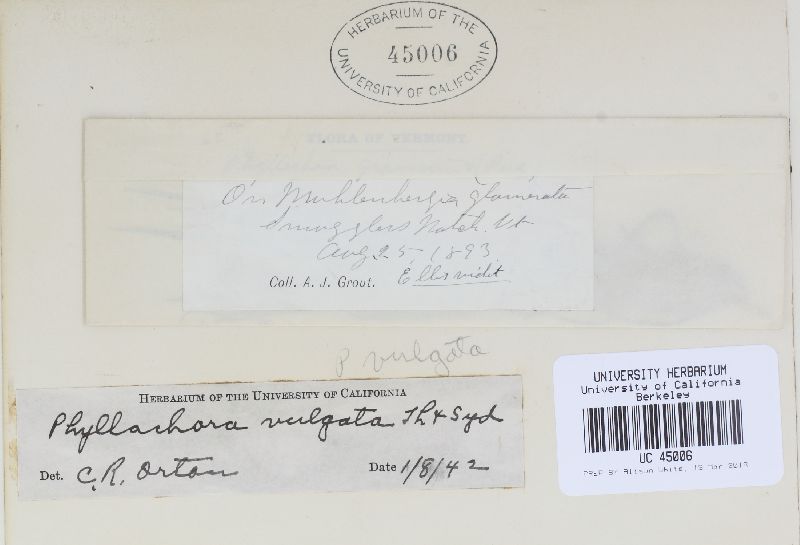 HERBARIUM OF THE
45006
UNIVERSITY OF CALIFORNIA
FLORA OF VERMONT
On Muhlenbergia glomerata
Smugglers Notch. Vt
Aug 25 1893
Coll. A. J. Grout. Ellis vidit
P vulgata
HERBARIUM OF THE UNIVERSITY OF CALIFORNIA
Phyllachora vulgata Th & Syd
Det. C. R. Orton Date 1/8/42
UNIVERSITY HERBARIUM
University of California
Berkeley
UC 45006
PREP BY Alison White, 13 Mar 2013